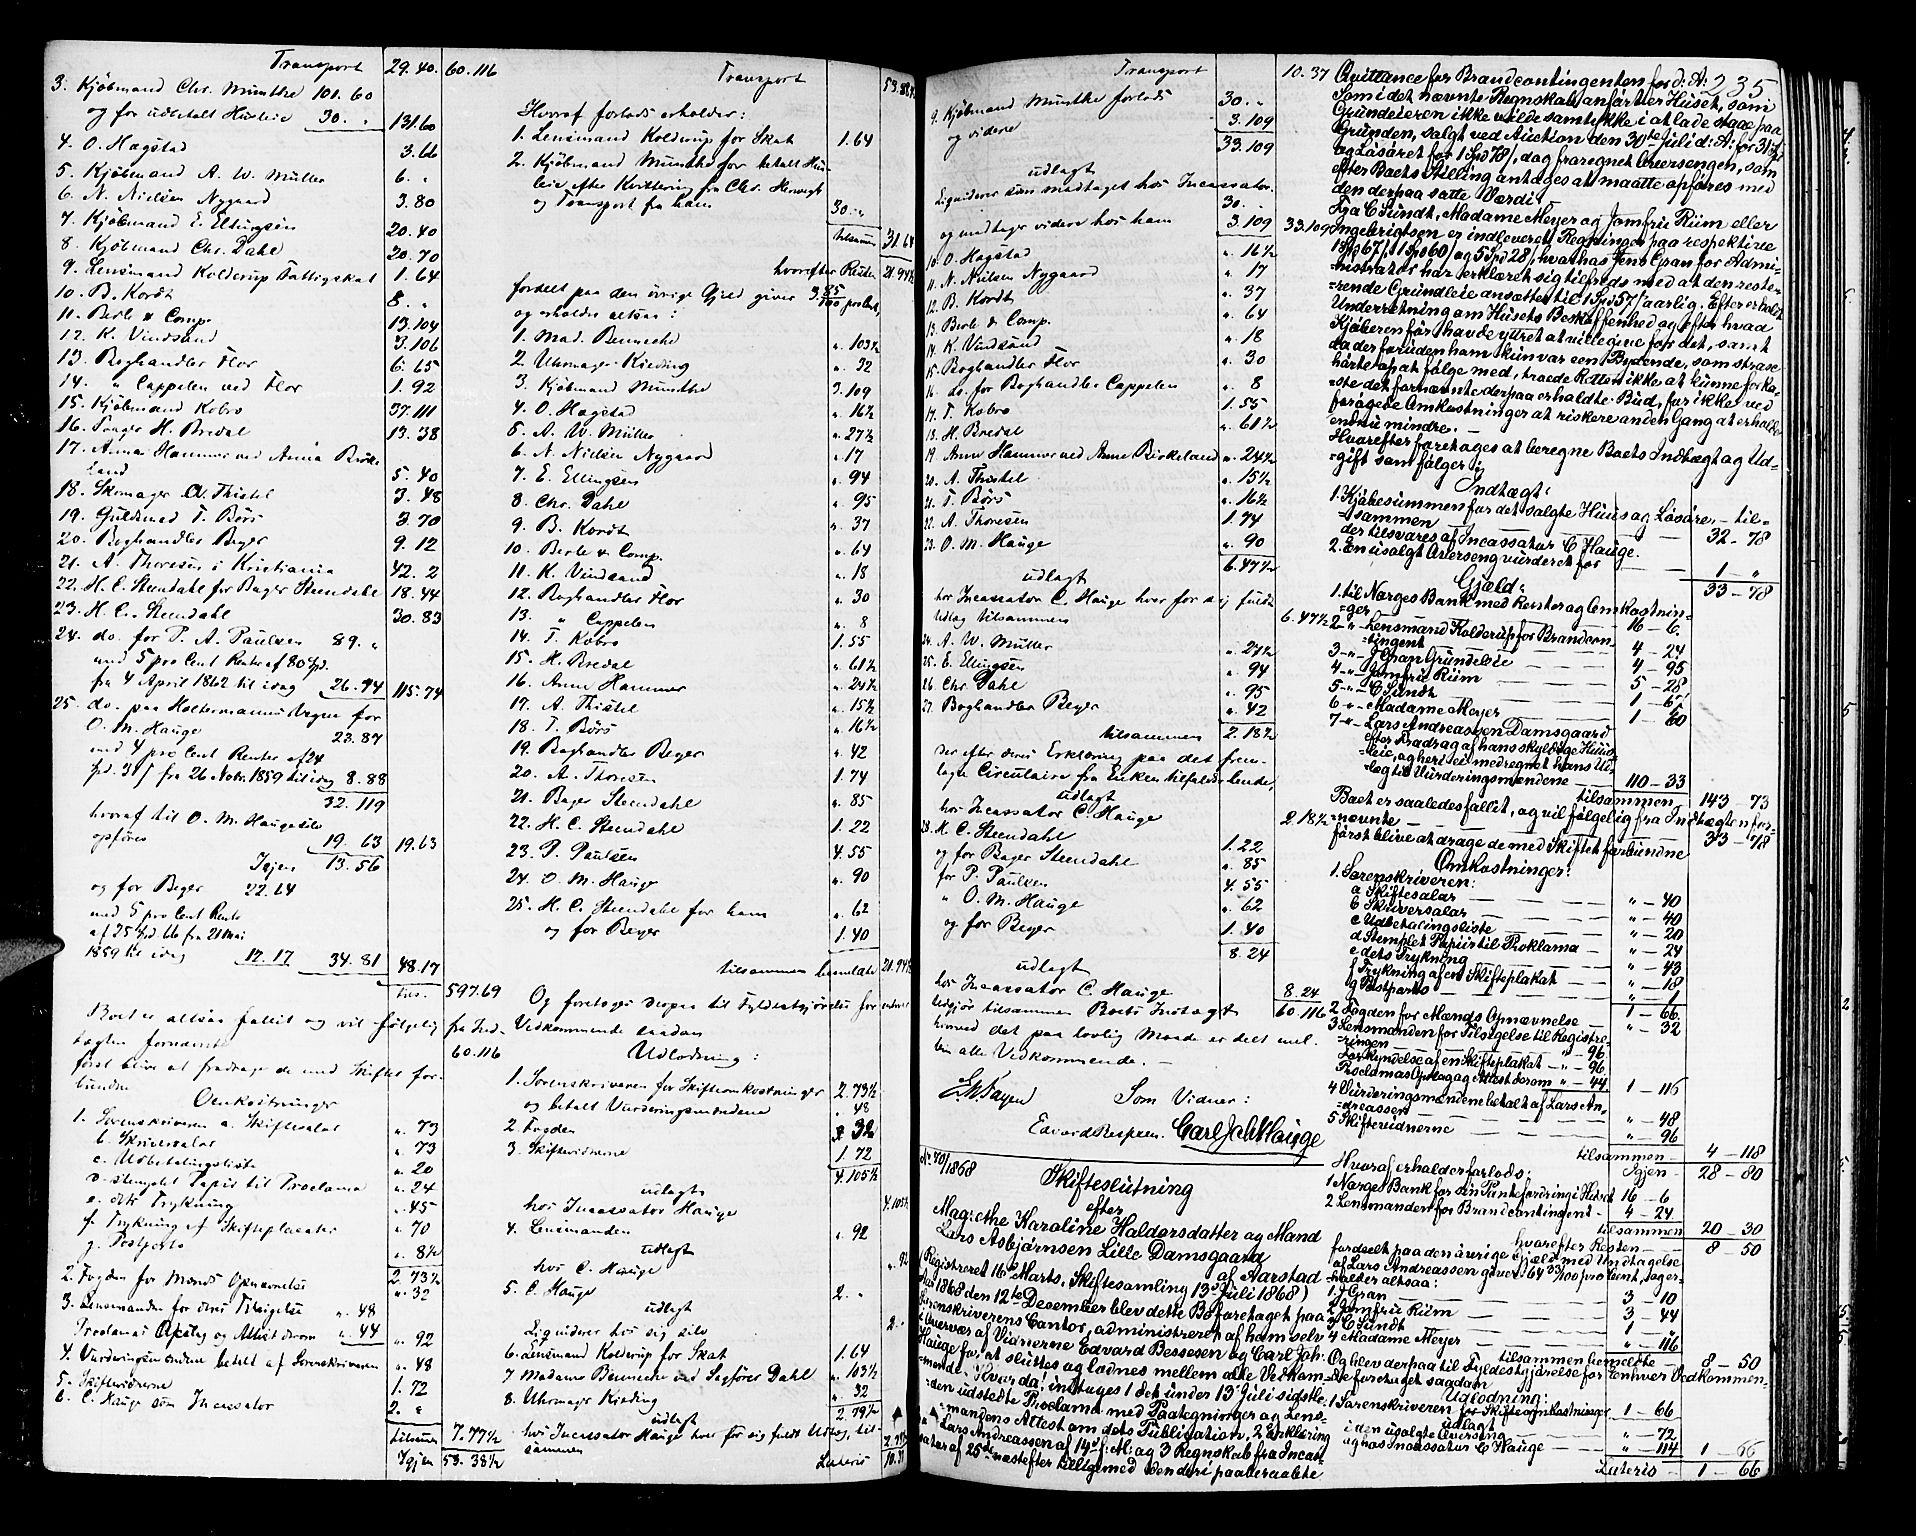 Transport 29. 40. 60. 116
3. Kjöbmand Chr. Munthe 101. 60
og for udbetalt Husleie 30. „ 131. 60
4. O. Hagstad 3. 66
5. Kjöbmand A. W. Müller 6. „
6. N. Nielsen Nygaard 3. 80
7. Kjöbmand E. Ellingsen 20. 40
8. Kjöbmand Chr. Dahl 20. 70
9. Lensmand Kolderup Fattigskat 1. 64
10. B. Kordt 8. „
11. Berle & Comp. 13. 104
12. K. Vindsand 3. 106
13. Boghandler Flor 6. 65
14. „ Cappelen ved Flor 1. 92
15. Kjöbmand Kobro 37. 111
16. H. Bredal 13. 38
17. Anna Hammer ved Anna Birke-
land 5. 40
18. Skomager A. Thistel 3. 48
19. Guldsmed T. Börs 3. 70
20. Boghandler Beyer 9. 12
21. A. Thoresen i Kristiania 42. 2
22. H. C. Steendahl for Bager Steendahl 18. 44
23. H. C. Steendahl 30. 83
24. do. for P. A. Paulsen 89. „
med 5 pro Cent Rente af 80 Spd.
fra 4 April 1862 til idag 26. 74 115. 74
25. do. paa Holtermanns Vegne for
O. M. Hauge 23. 87
med 4 pro Cent Renter af 24
Spd. 31 / fra 26 Novbr. 1859 til idag 8. 88
32. 119
hvoraf til O. M. Hauge selv
opföres 19. 63 19. 63
Igjen 13. 56
og for Beyer 22. 64
med 5 pro Cent Rente
af 25 Spd. 66 fra 21 Mai
1859 til idag 12. 17 34. 81 48. 17
tils. 597. 69
Boet er altsaa fallit og vil fölgelig fra Ind-
tægten fornævnte 60. 116
först blive at fradrage de med Skiftet for-
bundne
Omkostninger
1. Sorenskriveren a. Skiftesalar „. 73
b. Skriversalar „. 73
c. Udbetalingsliste „. 20
d. stemplet Papir til Proclama „. 24
e. dets Trykning „. 45
f. Trykning af Skifteplacater „. 70
g. Postporto „. 8½
2. 73½
2. Fogden for Mænds Opnævnelse „. 32
3. Lensmanden for deres Tilsigelse „. 48
Proclamas Opslag og Attest derom „. 44 „. 92
4. Vurderingsmændene betalt af Sorenskriveren „. 48
5. Skiftevidnerne 1. 72
6. C. Hauge som Incassator 2. „
tilsammen 7. 77½
Igjen 53. 38½
Transport 53. 38½
Hvoraf forlods erholder:
1. Lensmand Kolderup for Skat 1. 64
2. Kjöbmand Munthe for betalt Hus-
leie efter Kvittering fra Chr. Herwegh
og Transport fra ham 30. „
tilsammen 31. 64
hvorefter Resten 21. 94½
fordelt paa den övrige Gjeld giver 3 85/100 procent,
og erholder altsaa:
1. Mad. Benneche „. 103½
2. Uhrmager Kieding „. 32
3. Kjöbmand Munthe 3. 109
4. O. Hagstad „. 16½
5. A. W. Müller „. 27½
6. N. Nielsen Nygaard „. 17
7. E. Ellingsen „. 94
8. Chr. Dahl „. 95
9. B. Kordt „. 37
10. Berle & Comp. „. 64
11. K. Vindsand „. 18
12. Boghandler Flor „. 30
13. „ Cappelen „. 8
14. T. Kobro 1. 55
15. H. Bredal „. 61½
16. Anna Hammer „. 24½
17. A. Thistel „. 15½
18. T. Börs „. 16½
19. Boghandler Beyer „. 42
20. A. Thoresen 1. 74
21. Bager Steendahl „. 85
22. H. C. Steendahl 1. 22
23. P. Paulsen 4. 55
24. O. M. Hauge „. 90
25. H. C. Steendahl for ham „. 62
og for Beyer 1. 40
tilsammen bemeldte 21. 94½
Og foretoges derpaa til Fyldestgjörelse for enhver
Vedkommende saadan
Udlodning:
1. Sorenskriveren for Skifteomkostninger 2. 73½
og betalt Vurderingsmændene „. 48
2. Fogden „. 32
3. Skiftevidnerne 1. 72
4. 105½
udlagt
hos Incassator Hauge 4. 105½
4. Lensmanden „. 92
udlagt
hos C. Hauge „. 92
5. C. Hauge 2. „
udlagt
Liqviderer hos sig selv 2. „
6. Lensmand Kolderup for Skat 1. 64
7. Madame Benneche ved Sagförer Dahl „. 103½
8. Uhrmager Kieding „. 32
2. 79½
udlagt
hos Incassator Hauge hver for sig fuldt Udlæg, til-
sammen 2. 79½
Lateris 10. 37
Transport 10. 37
9. Kjöbmand Munthe forlods 30. „
og videre 3. 109
33. 109
udlagt
Liqviderer som modtaget hos Incassator 30. „
og modtager videre hos ham 3. 109 33. 109
10. O. Hagstad „. 16½
11. N. Nielsen Nygaard „. 17
12. B. Kordt „. 37
13. Berle & Comp. „. 64
14. K. Vindsand „. 18
15. Boghandler Flor „. 30
16. do. for Boghandler Cappelen „. 8
17. T. Kobro 1. 55
18. H. Bredal „. 61½
19. Anne Hammer ved Anne Birkeland „. 24½
20. A. Thistel „. 15½
21. T. Börs „. 16½
22. A. Thoresen 1. 74
23. O. M. Hauge „. 90
6. 47½
udlagt
hos Incassator C. Hauge hver for sig fuldt
Udlæg tilsammen 6. 47½
24. A. W. Müller „. 27½
25. E. Ellingsen „. 94
26. Chr. Dahl „. 95
27. Boghandler Beyer „. 42
tilsammen 2. 18½
der efter deres Erklæring paa det frem-
lagte Circulaire fra Enken tilfalder hende,
udlagt
hos Incassator C. Hauge 2. 18½
28. H. C. Steendahl 1. 22
og for Bager Steendahl „. 85
for P. Paulsen 4. 55
„ O. M. Hauge „. 62
og for Beyer 1. 40
8. 24
udlagt
hos Incassator C. Hauge 8. 24
Udgjör tilsammen Boets Indtægt 60. 116
hvormed det paa lovlig Maade er delt mel-
lem alle Vedkommende. —
Som Vidner:
Edvard Bessesen. Carl Joh Hauge
No. 40/1868
Skifteslutning
efter
Mag: ethe Karoline Haldorsdatter og Mand
Lars Asbjørnsen Lille Damsgaard
af Aarstad
(Registreret 16de Marts, Skiftesamling 13de Juli 1868)
Aar 1868 den 12te December blev dette Bo foretaget paa
Sorenskriverens Contor, administreret af ham selv
i Overvær af Vidnerne Edvard Bessesen og Carl Joh.
Hauge for at sluttes og lodnes mellem alle Vedkom-
mende. Hvorda! indtoges 1 det under 13de Juli sidstle-
den udstedte Proclama med Paategninger og Lens-
mandens Attest om dets Publication, 2 Erklæring
fra Lars Andreassen af 14de f: M: og 3 Regnskab fra Incas-
sator af 25de næstefter tilligemed den deri paaberaabte
235
Qvittance for Brandcontingenten for d: A:
Som i det nævnte Regnskab anført er Huset, som
Grundeieren ikke vilde samtykke i at lade staae paa
Grunden, solgt ved Auction den 30te Juli d: A: for 31 Spd
og Løsøret for 1 Spd 78/, dog fraregnet Øversengen, som
efter Boets Stilling antages at maatte opføres med
den derpaa satte Værdi.
Fra C Sundt, Madame Meyer og Jomfru Riim eller
Ingebrigtsen er indleveret Regninger paa respektive
1 Spd 67/, 1 Spd 60/ og 5 Spd 28/, hvorhos Jens Gran for Admi-
nistrator har erklæret sig tilfreds med at den reste-
rende Grundleie ansættes til 1 Spd 57/ aarlig. Efter erholdt
Underretning om Husets Beskaffenhed og efter hvad
Kjøberen før havde yttret at ville give for det, samt
da der foruden ham kun var een Bydende, som strax
hørte op at følge med, troede Retten ikke at kunne forka-
ste det fornævnte derpaa erholdte Bud, for ikke ved
forøgede Omkostninger at riskere anden Gang at erholde
endnu mindre. —
Hvorefter foretoges at beregne Boets Indtægt og Ud-
gift som følger:
Indtægt:
1. Kjøbesummen for det solgte Huus og Løsøre, — til-
sammen — 32 - 78
der tilsvares af Incassator C Hauge.
2. En usolgt Øverseng vurderet for — 1 - „
33 - 78
Gjæld:
1. til Norges Bank med Renter og Omkostnin-
ger 16 - 6
2 - „ - Lensmand Kolderup for Brandcon-
tingent 4 - 24
3 - „ - J Gran Grundleie 4 - 95
4 - „ - Jomfru Riim 5 - 28
5 - „ - C Sundt 1 - 67
6 - „ - Madame Meyer 1 - 60
7 - „ - Lars Andreassen Damsgaard
efter Fradrag af hans skyldige Huus-
leie, og heri ei medregnet hans Ud-
læg til Vurderingsmændene 110 - 33
tilsammen 143 - 73
Boet er saaledes fallit, og vil følgelig fra Indtægten for-
nævnte — 33 - 78
først blive at drage de med Skiftet forbundne
Omkostninger:
1. Sorenskriveren:
a Skiftesalar „ - 40
b Skriversalar „ - 40
c Udbetalingsliste „ - 20
d Stemplet Papiir til Proklama „ - 24
e dets Trykning „ - 43
f Trykning af en Skifteplakat „ - 18
g Postporto „ - 1
1 - 66
2 Fogden for Mænds Opnævnelse „ - 32
3 Lensmanden for Tilsigelse til Registre-
ringen „ - 96
Forkyndelse af en Skifteplakat „ - 96
Proclamas Opslag og Attest derom „ - 44 1 - 116
4 Vurderingsmændene betalt af Lars An-
dreassen „ - 48
5 Skiftevidnerne „ - 96
tilsammen 4 - 118
Igjen 28 - 80
Hvoraf erholder forlods:
1 Norges Bank for sin Pantefordring i Huset 16 - 6
2 Lensmanden for Brandcontingent - 4 - 24
tilsammen 20 - 30
hvorefter Resten 8 - 50
fordeelt paa den øvrige Gjæld med Undtagelse
af Lars Andreassen giver 64 33/100 procent, og er-
holder altsaa:
1 J Gran 3 - 10
2 Jomfru Riim 3 - 44
3 C Sundt 1 - „
4 Madame Meyer „ - 116
tilsammen bemeldte 8 - 50
Og blev derpaa til Fyldestgjørelse for Enhver Vedkommen-
de foretaget saadan
Udlodning:
1 Sorenskriveren for Skifteomkostninger 1 - 66
udlagt
i den usolgte Øverseng „ - 72
og hos Incassator C Hauge „ - 114 1 - 66
Lateris 1 - 66